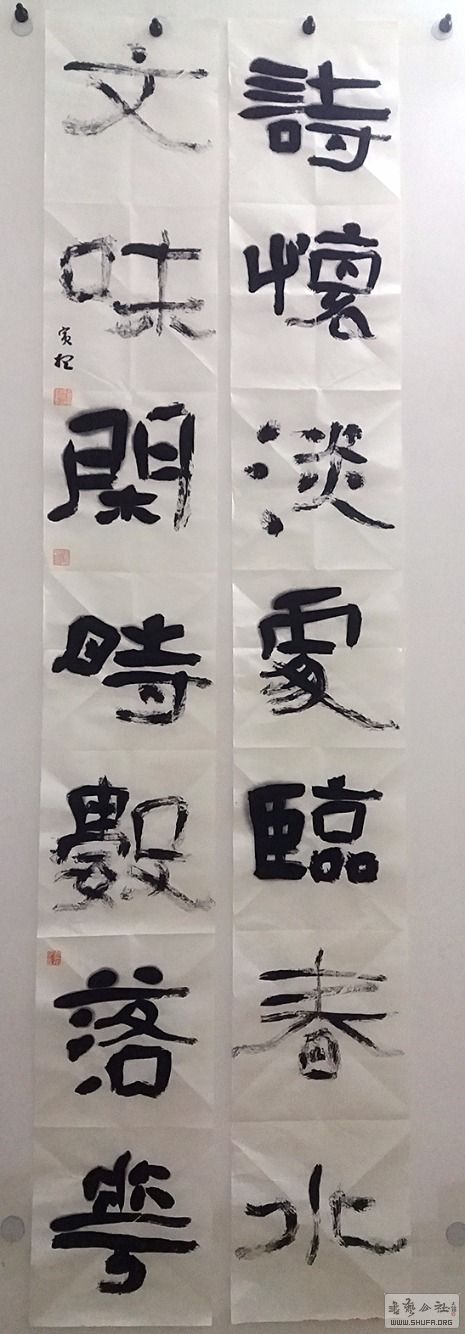 詩懷淡處臨春水
文味閑時數落花
書藝公社
WWW.SHUFA.ORG